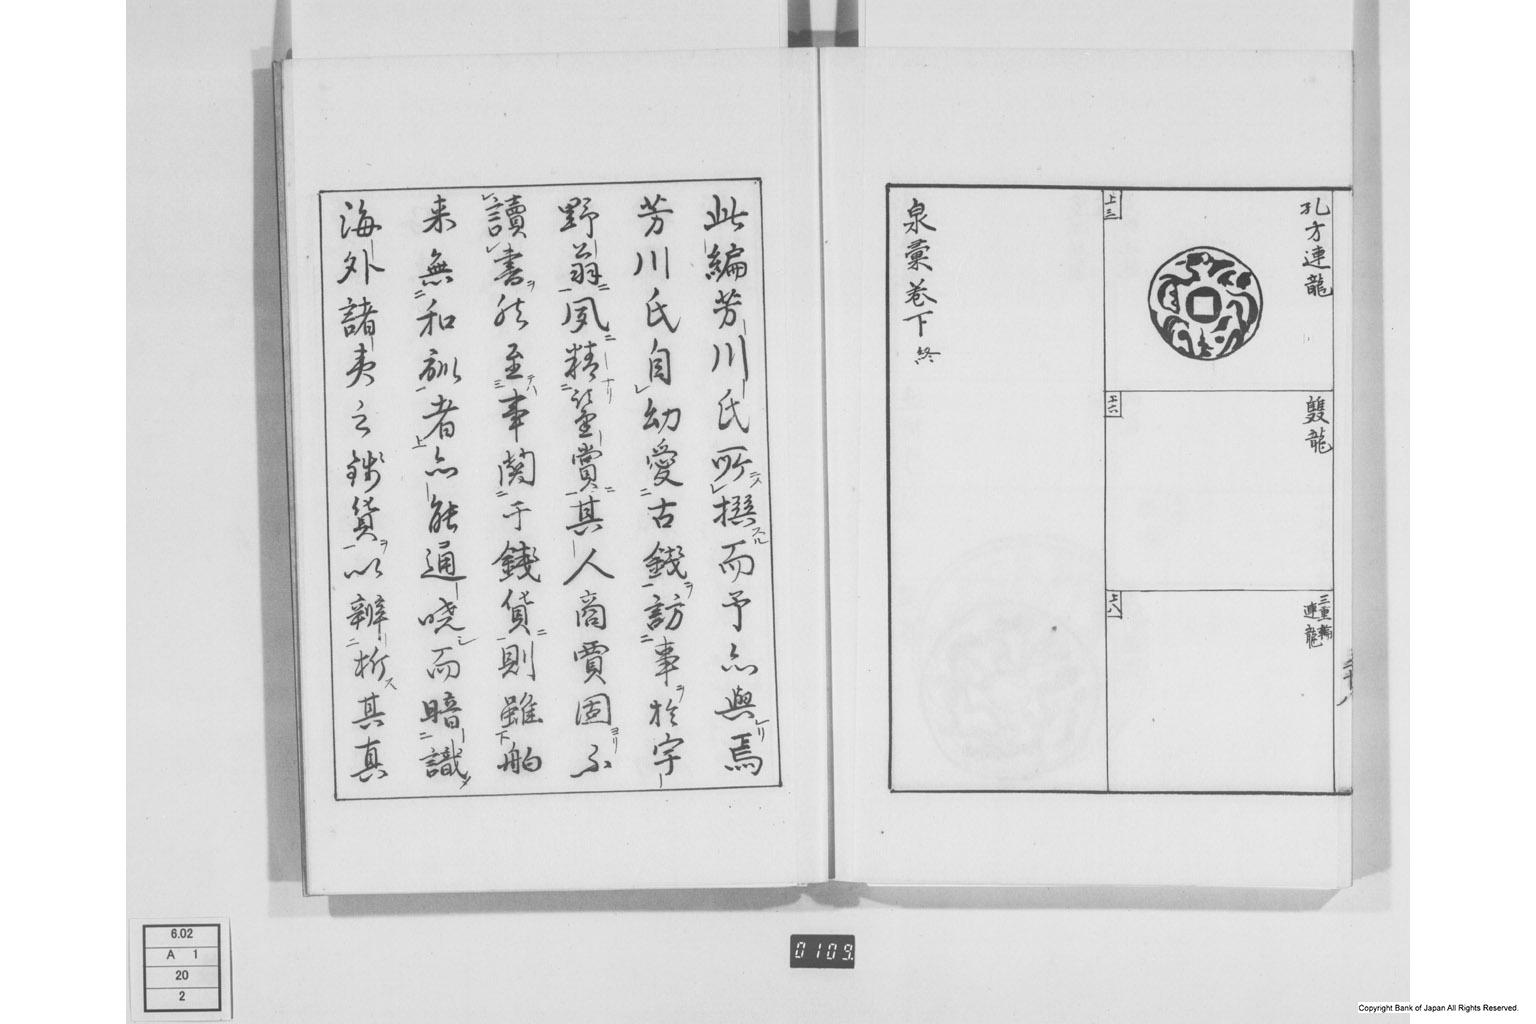 孔方連龍
上三
雙龍
上六
三重輪
連龍
上八
三十八
泉彙巻下終
此編芳川氏所撰而予亦與焉
芳川氏自幼愛古錢訪事於宇
野翁夙精鑒賞其人商賈固不
讀書然至事関于錢貨則雖舶
来無和訓者亦能通暁而暗識
海外諸夷之錢貨以辨析其真
6.02
A 1
20
2
0109.
Copyright Bank of Japan All Rights Reserved.